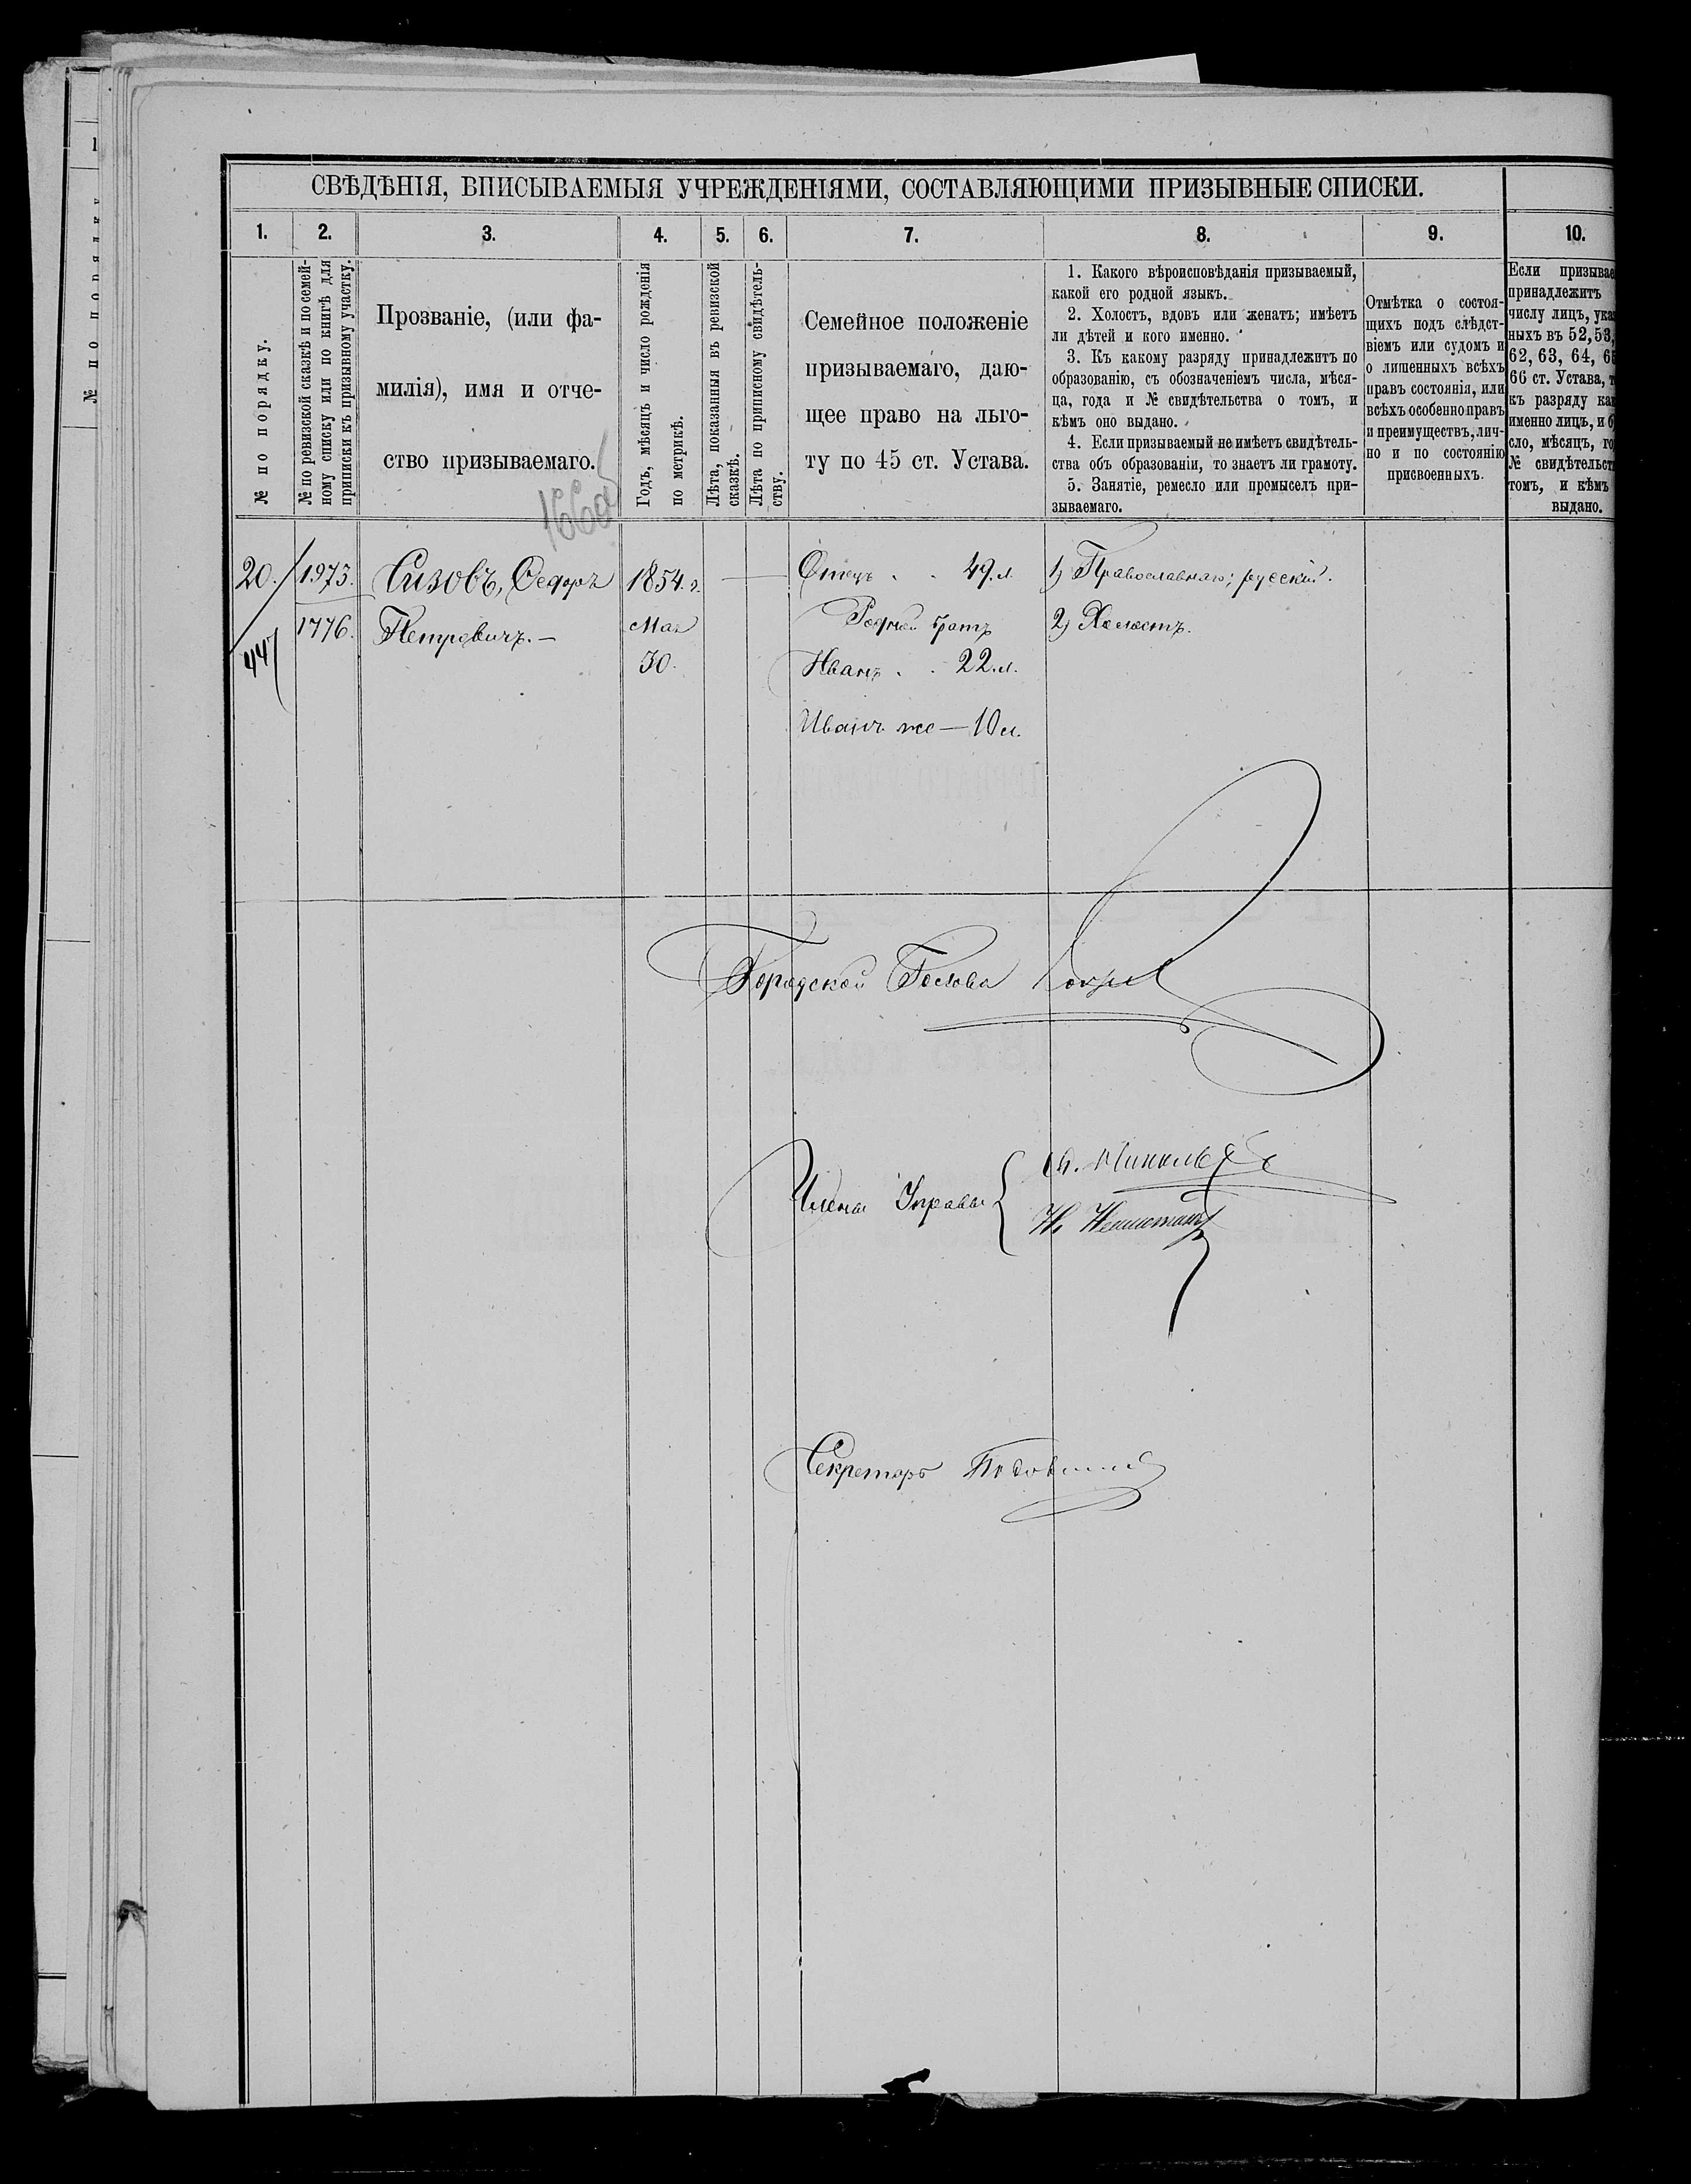 СВѢДѢНІЯ, ВПИСЫВАЕМЫЯ УЧРЕЖДЕНІЯМИ, СОСТАВЛЯЮЩИМИ ПРИЗЫВНЫЕ СПИСКИ.
1. 2. 3. 4. 5. 6. 7. 8. 9. 10.
№ по порядку.
№ по ревизской сказкѣ и по семей-
ному списку или по книгѣ для
приписки къ призывному участку.
Прозваніе, (или фа-
милія), имя и отче-
ство призываемаго.
Годъ, мѣсяцъ и число рожденія
по метрикѣ.
Лѣта, показанныя въ ревизской
сказкѣ.
Лѣта по приписному свидѣтель-
ству.
Семейное положеніе
призываемаго, даю-
щее право на льго-
ту по 45 ст. Устава.
1. Какого вѣроисповѣданія призываемый,
какой его родной языкъ.
2. Холостъ, вдовъ или женатъ; имѣетъ
ли дѣтей и кого именно.
3. Къ какому разряду принадлежитъ по
образованію, съ обозначеніемъ числа, мѣся-
ца, года и № свидѣтельства о томъ, и
кѣмъ оно выдано.
4. Если призываемый не имѣетъ свидѣтель-
ства объ образованіи, то знаетъ ли грамоту.
5. Занятіе, ремесло или промыселъ при-
зываемаго.
Отмѣтка о состоя-
щихъ подъ слѣдст-
віемъ или судомъ и
о лишенныхъ всѣхъ
правъ состоянія, или
всѣхъ особенно правъ
и преимуществъ, лич-
но и по состоянію
присвоенныхъ.
Если призывае
принадлежитъ
числу лицъ, ука
ныхъ въ 52, 53,
62, 63, 64, 65
66 ст. Устава, т
къ разряду ка
именно лицъ, и
сло, мѣсяцъ, го
№ свидѣтельст
томъ, и кѣмъ
выдано.
20. 1973. Сизовъ, Ѳедоръ 1854. г. Отецъ . . 49. л. 1) Православнаго; русскій.
1776. Петровичъ. — Мая Родной братъ 2) Холостъ.
44 30. Иванъ . . 22. л.
Иванъ же — 10 л.
Городской Голова
Члены Управы
Секретарь